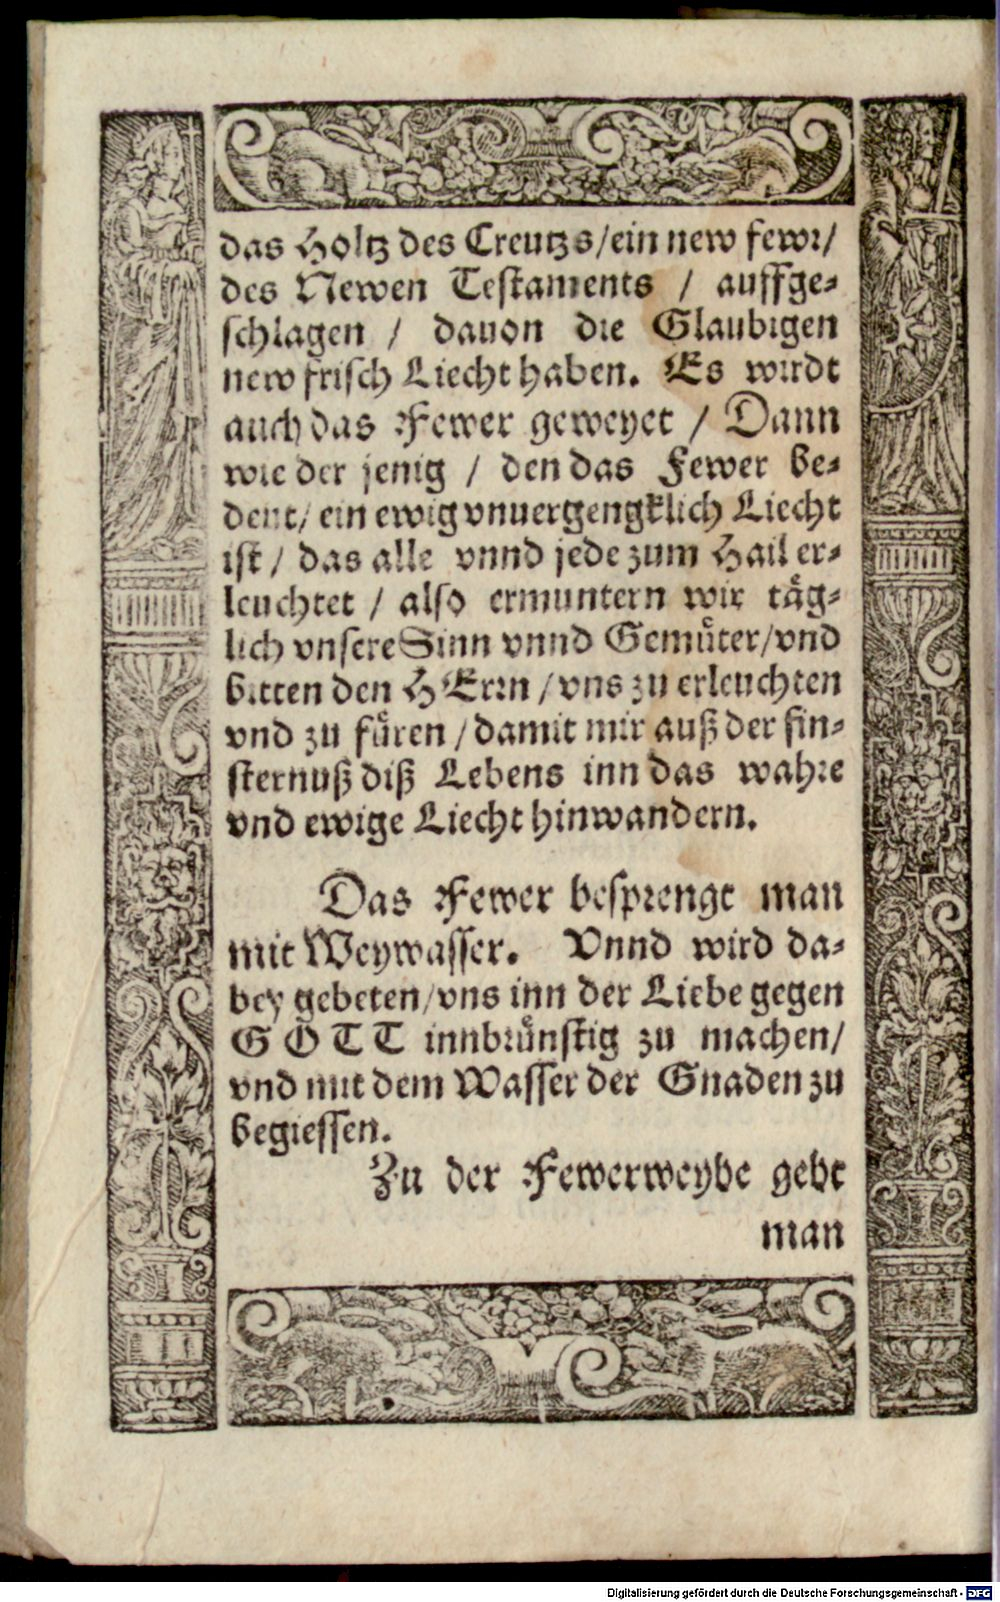 das Holtz des Creutzs/ein new fewr/
des Newen Testaments / auffge-
schlagen / dauon die Glaubigen
new frisch Liecht haben. Es wirdt
auch das Fewer geweyet / Dann
wie der jenig / den das Fewer be-
deut/ ein ewig vnuergengklich Liecht
ist / das alle vnnd jede zum Hail er-
leuchtet / also ermuntern wir täg-
lich vnsere Sinn vnnd Gemüter/vnd
bitten den HErrn / vns zu erleuchten
vnd zu füren / damit mir auß der fin-
sternuß diß Lebens inn das wahre
vnd ewige Liecht hinwandern.
Das Fewer besprengt man
mit Weywasser. Vnnd wird da-
bey gebeten/vns inn der Liebe gegen
GOTT innbrünstig zu machen/
vnd mit dem Wasser der Gnaden zu
begiessen.
Zu der Fewerweyhe geht
man
Digitalisierung gefördert durch die Deutsche Forschungsgemeinschaft - DFG